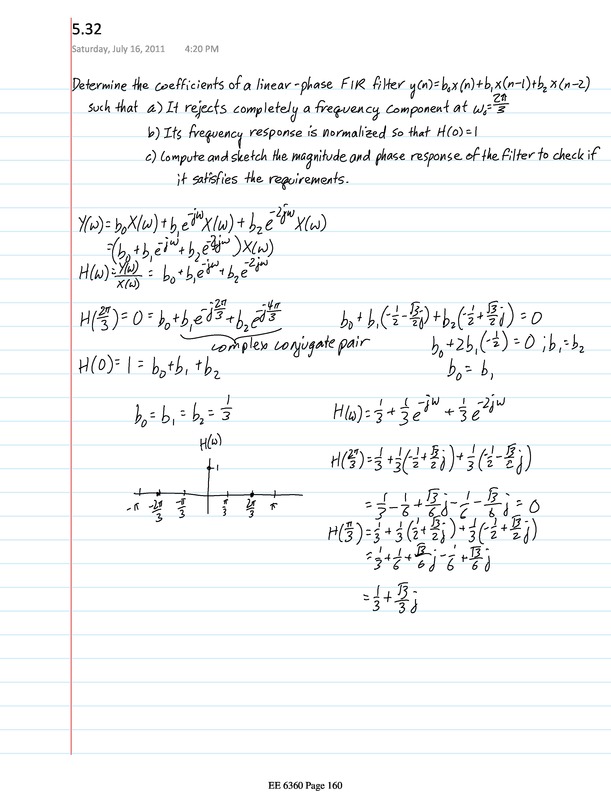 5.32
Saturday, July 16, 2011 4:20 PM
Determine the coefficients of a linear-phase FIR filter y(n)=b₀x(n)+b₁x(n-1)+b₂x(n-2)
such that a) It rejects completely a frequency component at ω₀=2π/3
b) Its frequency response is normalized so that H(0)=1
c) Compute and sketch the magnitude and phase response of the filter to check if
it satisfies the requirements.
Y(ω)=b₀X(ω)+b₁e^-jω X(ω)+b₂e^-2jω X(ω)
=(b₀+b₁e^-jω+b₂e^-2jω)X(ω)
H(ω)=Y(ω)/X(ω) = b₀+b₁e^-jω+b₂e^-2jω
H(2π/3)=0=b₀+b₁e^-j2π/3+b₂e^-j4π/3
complex conjugate pair
H(0)=1=b₀+b₁+b₂
b₀+b₁(-1/2-√3/2j)+b₂(-1/2+√3/2j)=0
b₀+2b₁(-1/2)=0; b₁=b₂
b₀=b₁
b₀=b₁=b₂=1/3
H(ω)=1/3+1/3e^-jω+1/3e^-2jω
H(ω)
1
-π -2π/3 -π/3 π/3 2π/3 π
H(2π/3)=1/3+1/3(-1/2+√3/2j)+1/3(-1/2-√3/2j)
=1/3-1/6+√3/6j-1/6-√3/6j=0
H(π/3)=1/3+1/3(1/2+√3/2j)+1/3(-1/2+√3/2j)
=1/3+1/6+√3/6j-1/6+√3/6j
=1/3+√3/3j
EE 6360 Page 160